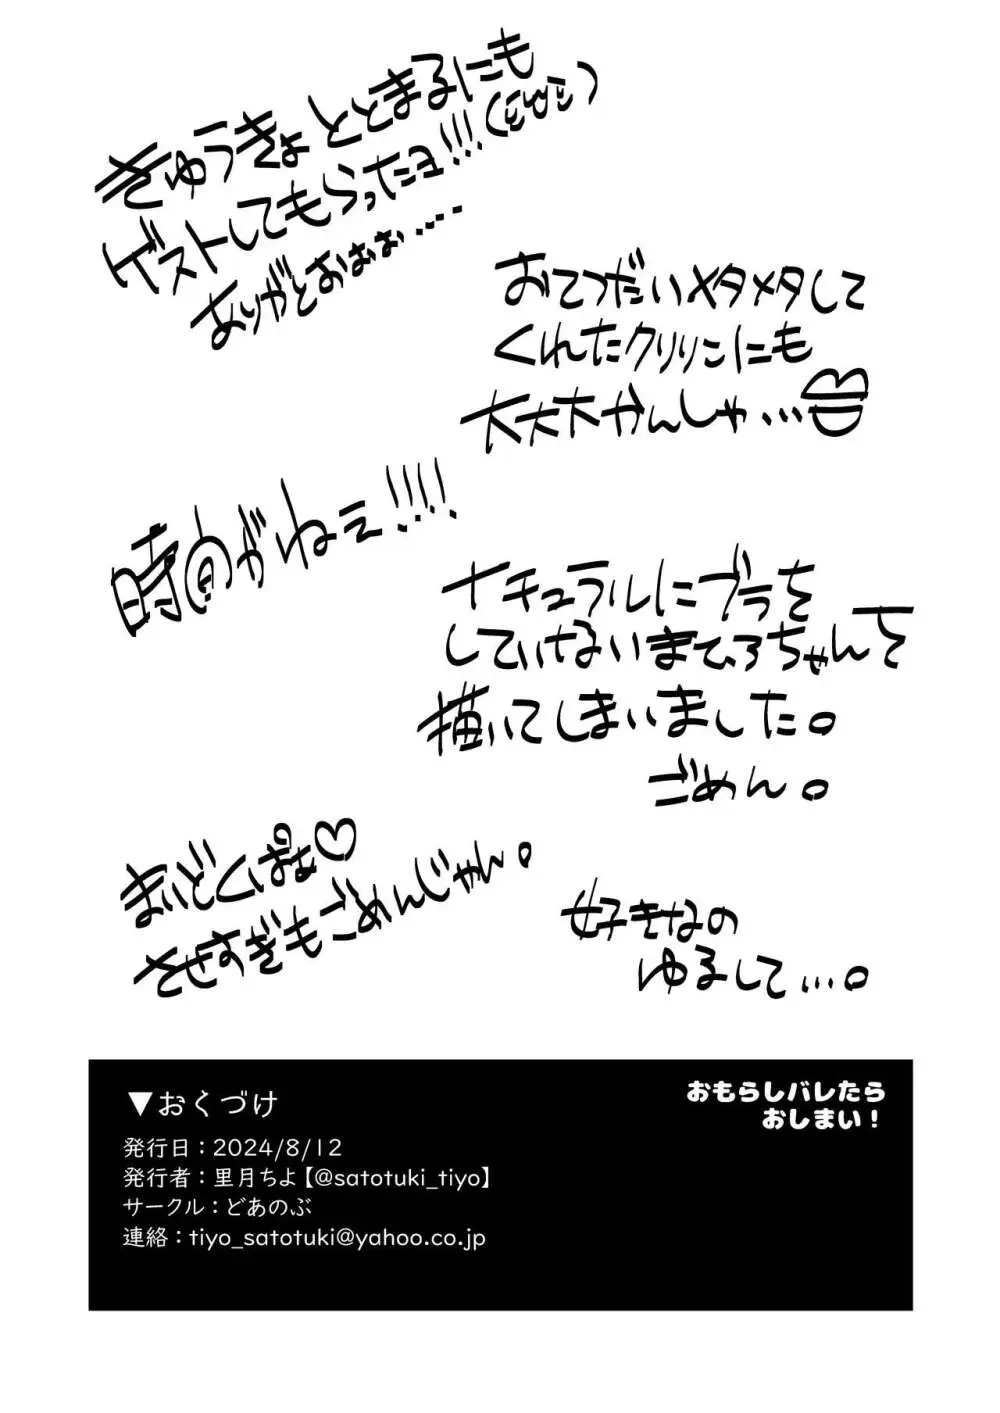 きゅうきょ ととまるにも
ゲストしてもらったヨ!!!(ミωミ)
ありがとおぉぉ....
おてつだいメタメタして
くれたクリリンにも
大大大かんしゃ...♡
時間がねェ!!!!
ナチュラルにブラを
していないまひろちゃんを
描いてしまいました。
ごめん。
まいどくぱぁ♡
させすぎもごめんじゃん。
好きなの
ゆるして...。
▼おくづけ
おもらしバレたら
おしまい！
発行日：2024/8/12
発行者：里月ちよ【@satotuki_tiyo】
サークル：どあのぶ
連絡：tiyo_satotuki@yahoo.co.jp